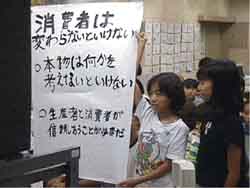 消費者は
変わらないといけない
○本物は何かを
考えないといけない
○生産者と消費者が
信頼しあうことが必要だ